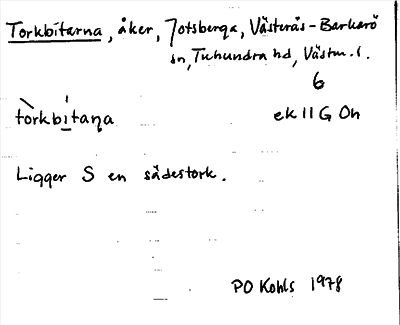 Torkbitarna, åker, Jotsberga, Västerås-Barkarö
sn, Tuhundra hd, Västm. l.
6
tòrkbítaṇa ek II G Oh
Ligger S en sädestork.
PO Kohls 1978